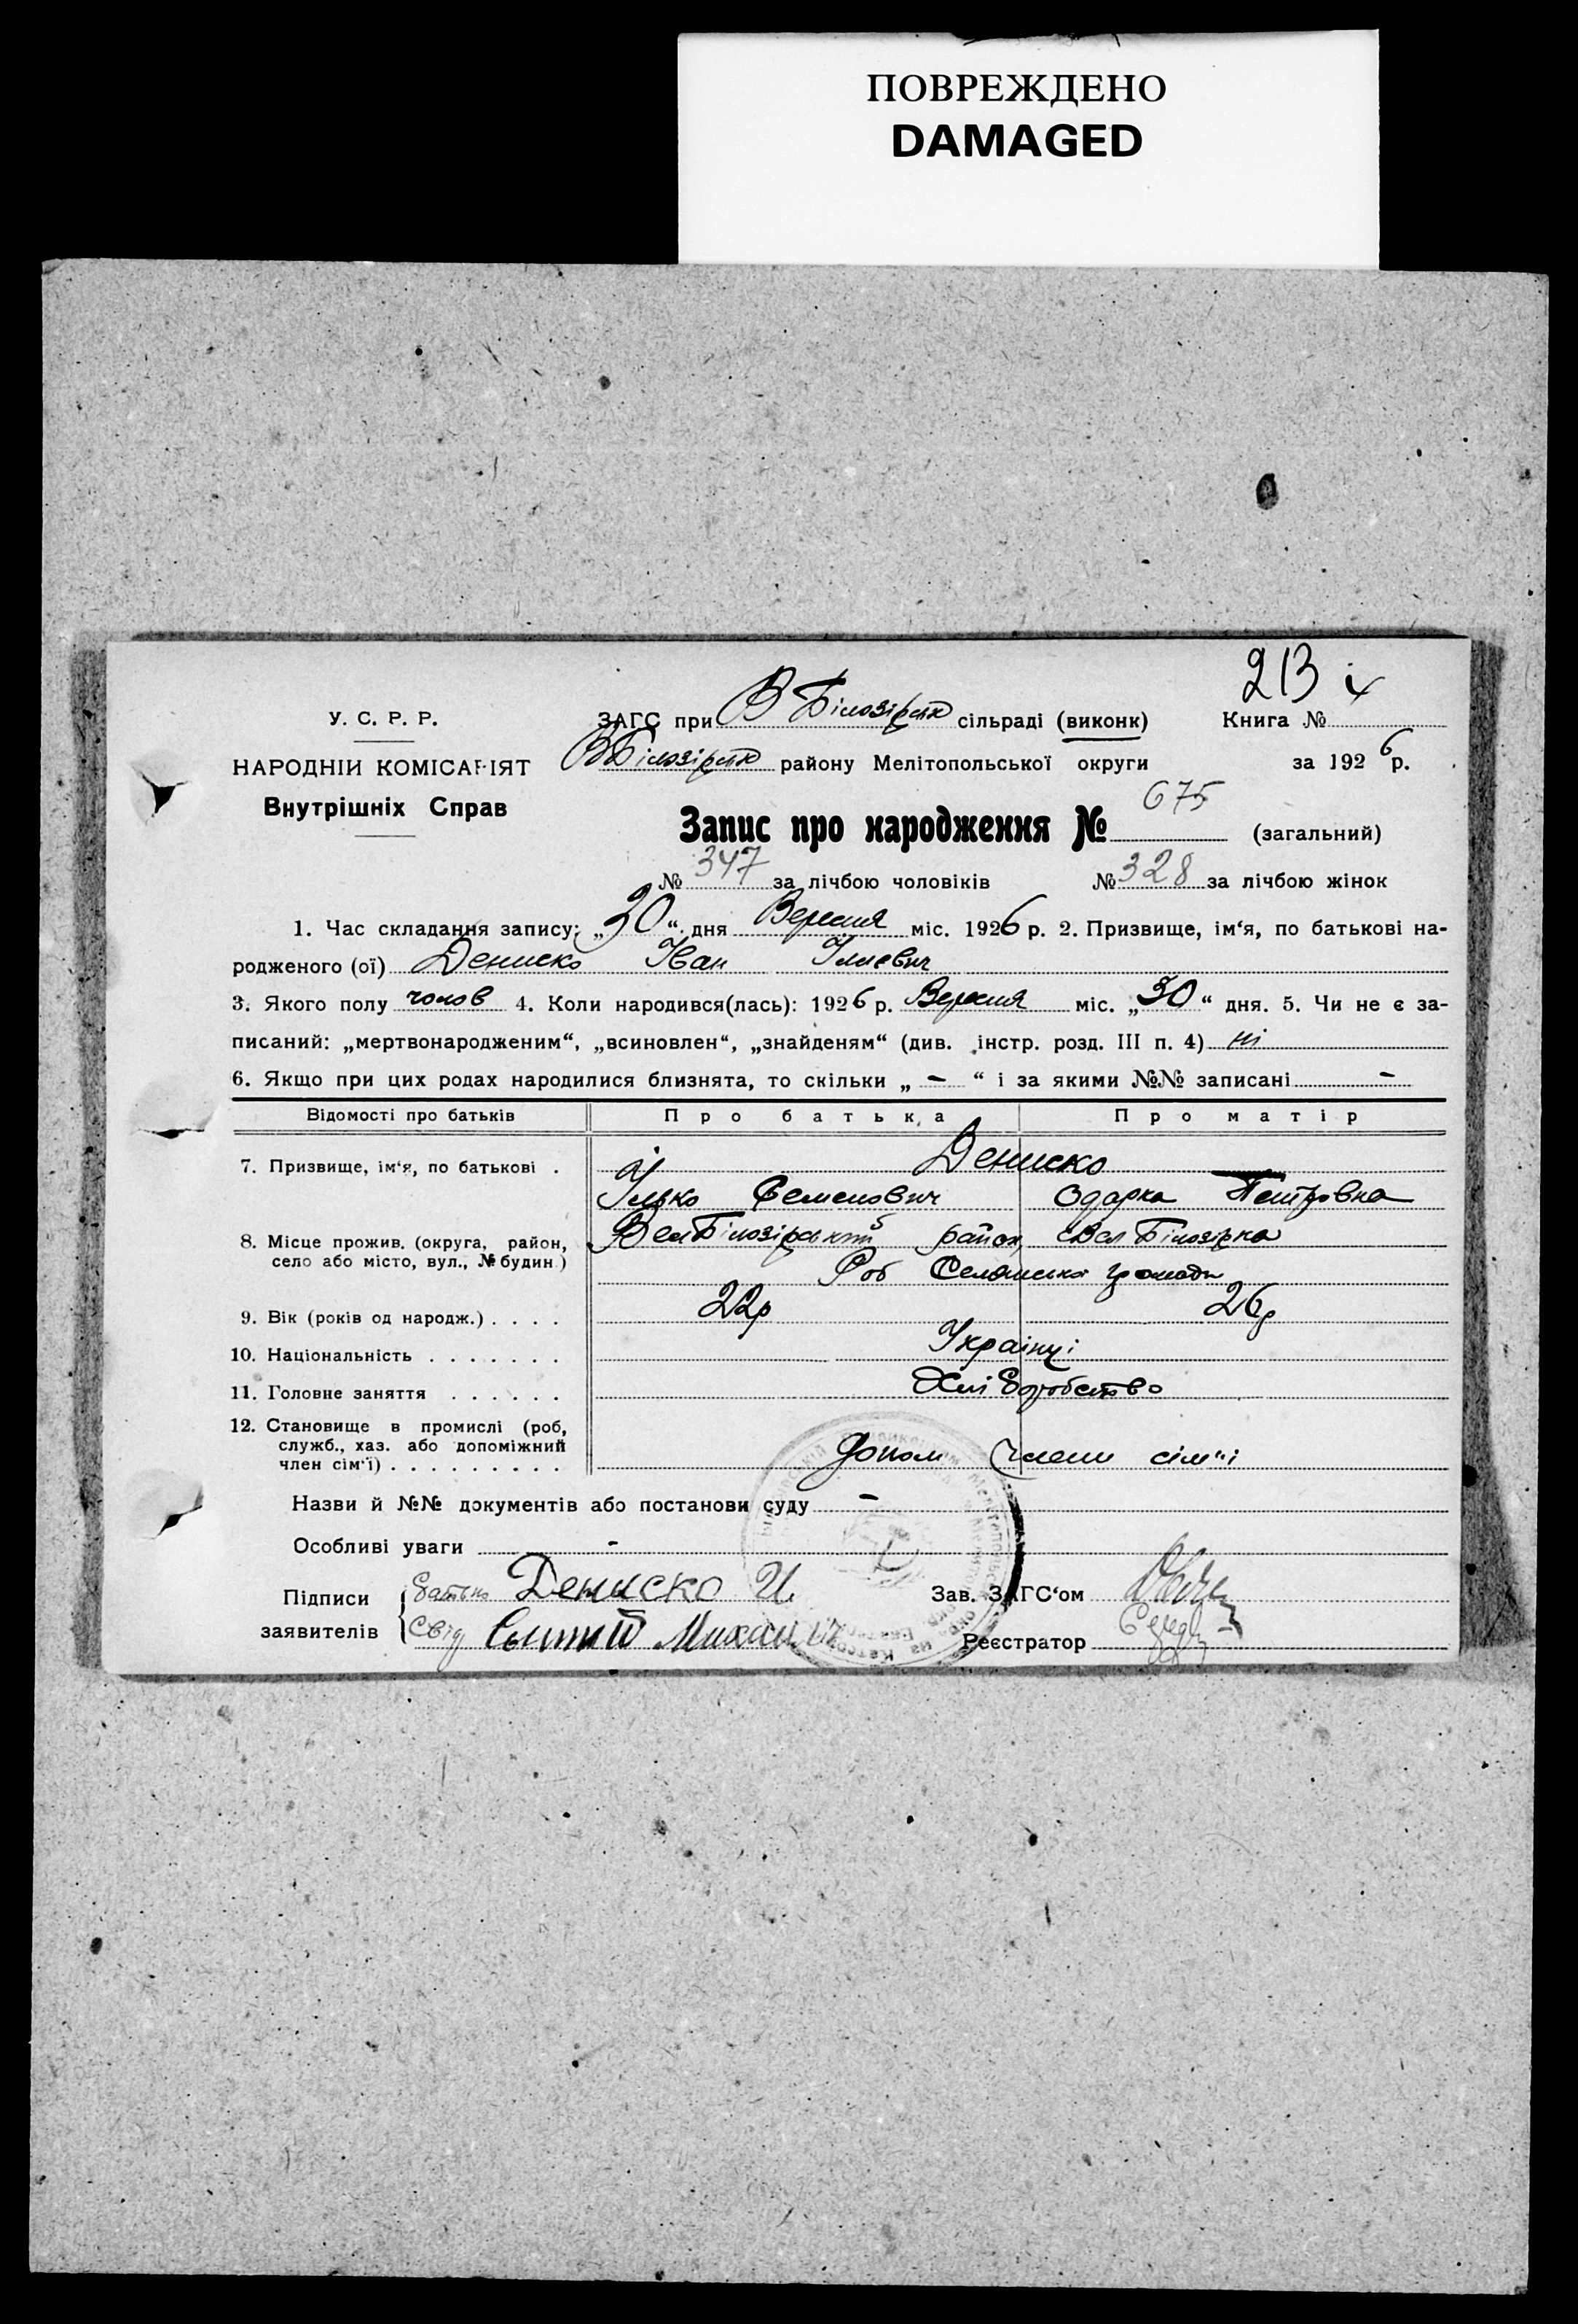 ПОВРЕЖДЕНО
DAMAGED
213
У. С. Р. Р.
ЗАГС при В Білозірск сільраді (виконк) Книга №
НАРОДНІЙ КОМІСАРІЯТ
ВБілозірск району Мелітопольської округи за 1926 р.
Внутрішніх Справ
Запис про народження № 675 (загальний)
№ 347 за лічбою чоловіків № 328 за лічбою жінок
1. Час складання запису: „30“ дня Вересня міс. 1926 р. 2. Призвище, ім‘я, по батькові на-
родженого (ої) Дениско Іван Ілиевич
3. Якого полу чолов 4. Коли народився(лась): 1926 р. Вересня міс. „30“ дня. 5. Чи не є за-
писаний: „мертвонародженим“, „всиновлен“, „знайденям“ (див. інстр. розд. III п. 4) ні
6. Якщо при цих родах народилися близнята, то скільки „ - “ і за якими №№ записані -
Відомості про батьків Про батька Про матір
7. Призвище, ім‘я, по батькові . Дениско
Ілько Семенович Одарка Петровна
8. Місце прожив. (округа, район, село або місто, вул., № будин.) ВелБілозірський район, Вел Білозірка
Роб Селянська громада
9. Вік (років од народж.) . . . . 22р 26р
10. Національність . . . . . . . Українці
11. Головне заняття . . . . . . Хліборобство
12. Становище в промислі (роб,
служб., хаз. або допоміжний
член сім‘ї) . . . . . . . . . допом Члени сім"і
Назви й №№ документів або постанови суду -
Особливі уваги -
Підписи заявителів батько Дениско И. Зав. ЗАГС‘ом
Свід Сытий Михаил Реєстратор